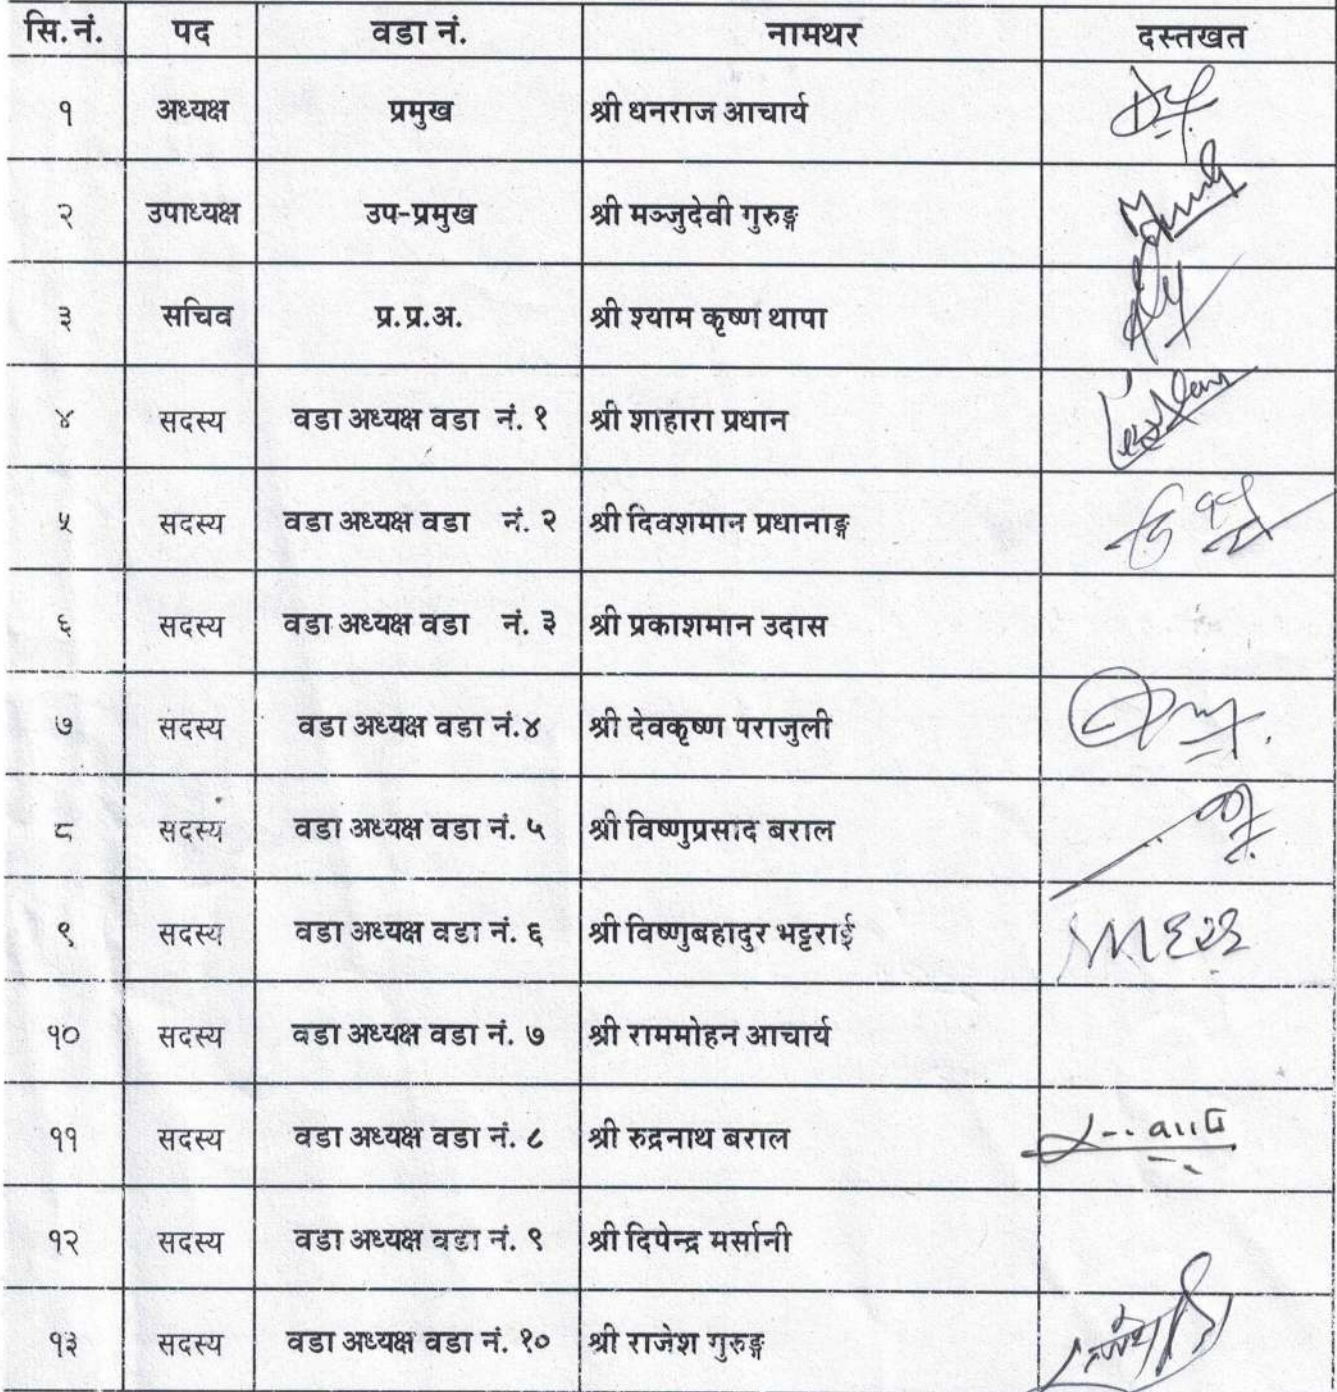 सि.नं. पद वडा नं. नामथर दस्तखत
१ अध्यक्ष प्रमुख श्री धनराज आचार्य
२ उपाध्यक्ष उप-प्रमुख श्री मञ्जुदेवी गुरुङ्ग
३ सचिव प्र.प्र.अ. श्री श्याम कृष्ण थापा
४ सदस्य वडा अध्यक्ष वडा नं. १ श्री शाहारा प्रधान
५ सदस्य वडा अध्यक्ष वडा नं. २ श्री दिवशमान प्रधानाङ्ग
६ सदस्य वडा अध्यक्ष वडा नं. ३ श्री प्रकाशमान उदास
७ सदस्य वडा अध्यक्ष वडा नं.४ श्री देवकृष्ण पराजुली
८ सदस्य वडा अध्यक्ष वडा नं. ५ श्री विष्णुप्रसाद बराल
९ सदस्य वडा अध्यक्ष वडा नं. ६ श्री विष्णुबहादुर भट्टराई
१० सदस्य वडा अध्यक्ष वडा नं. ७ श्री राममोहन आचार्य
११ सदस्य वडा अध्यक्ष वडा नं. ८ श्री रुद्रनाथ बराल
१२ सदस्य वडा अध्यक्ष वडा नं. ९ श्री दिपेन्द्र मर्सानी
१३ सदस्य वडा अध्यक्ष वडा नं. १० श्री राजेश गुरुङ्ग